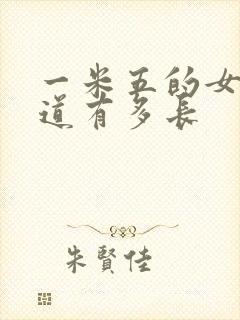 一米五的女
道有多长
朱賢佳